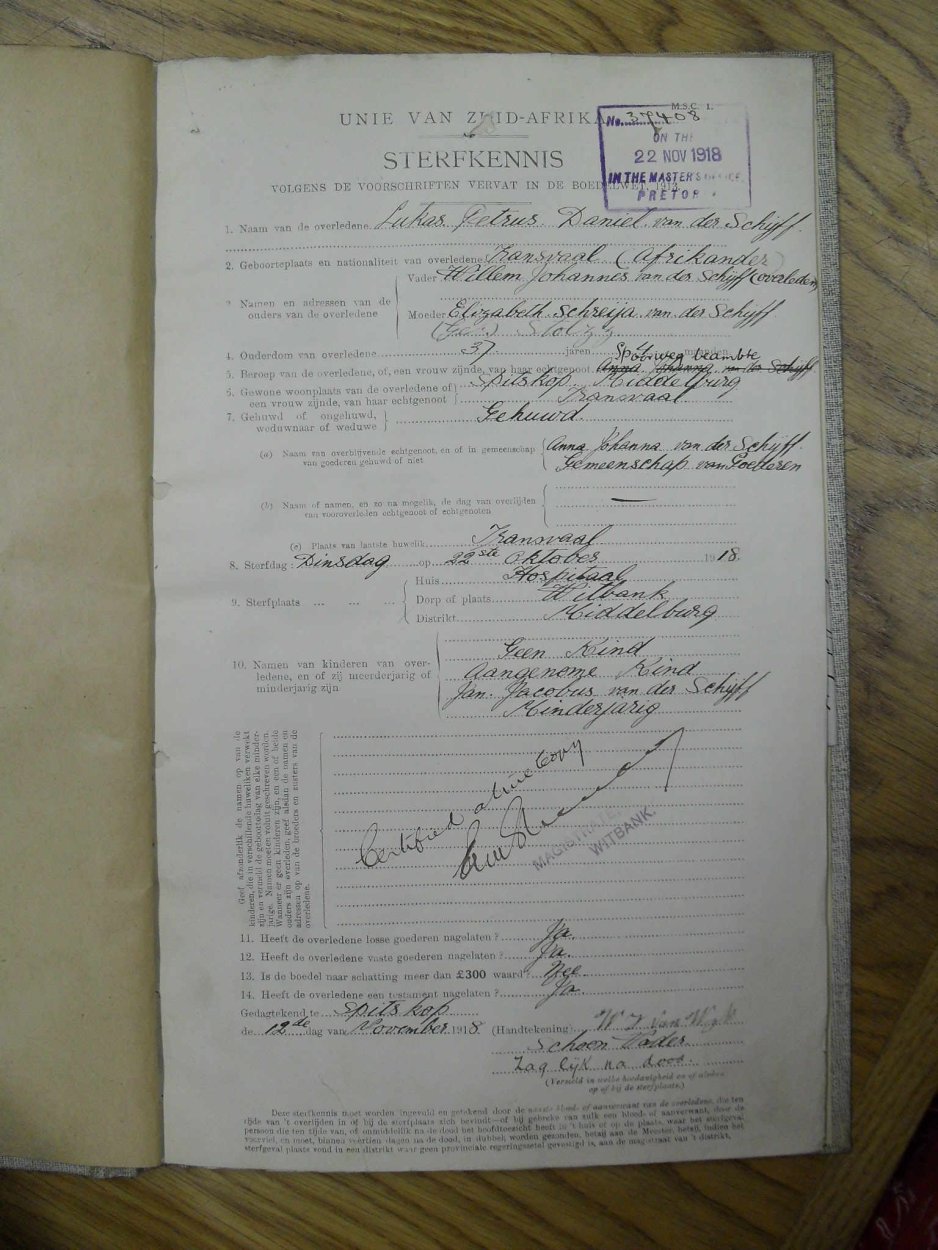 M.S.C. 1.
UNIE VAN ZUID-AFRIKA
No. 37408
ON THE
22 NOV 1918
IN THE MASTER'S OFFICE
PRETORIA
STERFKENNIS
VOLGENS DE VOORSCHRIFTEN VERVAT IN DE BOEDELWET, 1913.
1. Naam van de overledene Lukas Petrus Daniel van der Schijff
2. Geboorteplaats en nationaliteit van overledene Transvaal (Afrikander)
3. Namen en adressen van de ouders van de overledene
Vader Willem Johannes van der Schijff (overleden)
Moeder Elizabeth Schreija van der Schijff
4. Ouderdom van overledene 37 jaren maanden
5. Beroep van de overledene, of, een vrouw zijnde, van haar echtgenoot Anna Johanna van der Schijff Spoorweg beambte
6. Gewone woonplaats van de overledene of een vrouw zijnde, van haar echtgenoot Spitskop Middelburg
Transvaal
7. Gehuwd of ongehuwd, weduwnaar of weduwe Gehuwd
(a) Naam van overblijvende echtgenoot, en of in gemeenschap van goederen gehuwd of niet
Anna Johanna van der Schijff
Gemeenschap van Goederen
(b) Naam of namen, en zo na mogelik, de dag van overlijden van vooroverleden echtgenoot of echtgenoten —
(c) Plaats van laatste huwelik Transvaal
8. Sterfdag: Dinsdag op 22ste Oktober 1918
9. Sterfplaats
Huis Hospitaal
Dorp of plaats Witbank
Distrikt Middelburg
10. Namen van kinderen van overledene, en of zij meerderjarig of minderjarig zijn
Geen Kind
Aangenome Kind
Jan Jacobus van der Schijff
Minderjarig
Geef afzonderlik de namen op van de
kinderen, die in verschillende huweliken verwekt
zijn en vermeld de geboortedag van elke minderjarige. Namen moeten voluit geschreven worden.
Wanneer er geen kinderen zijn, en een of beide
ouders zijn overleden, geef alsdan de namen en
adressen op van de broeders en zusters van de
overledene.
Certified a true Copy
MAGISTRATE
WITBANK.
11. Heeft de overledene losse goederen nagelaten? Ja
12. Heeft de overledene vaste goederen nagelaten? Ja
13. Is de boedel naar schatting meer dan £300 waard? Nee
14. Heeft de overledene een testament nagelaten? Ja
Gedagtekend te Spitskop
de 12de dag van November 1918 (Handtekening) W J van Wyk
Schoon Vader
Zag lijk na dood.
(Vermeld in welke hoedanigheid en of aldaar
op of bij de sterfplaats.)
Deze sterfkennis moet worden ingevuld en getekend door de naaste bloed- of aanverwant van de overledene, die ten
tijde van 't overlijden in of bij de sterfplaats zich bevindt—of bij gebreke van zulk een bloed- of aanverwant, door de
persoon die ten tijde van, of onmiddellik na de dood het hoofdtoezicht heeft in 't huis of op de plaats, waar het sterfgeval
voorviel, en moet, binnen veertien dagen na de dood, in dubbel, worden gezonden, hetzij aan de Meester, hetzij, indien het
sterfgeval plaats vond in een distrikt waar geen provinciale regeringszetel gevestigd is, aan de magistraat van 't distrikt.